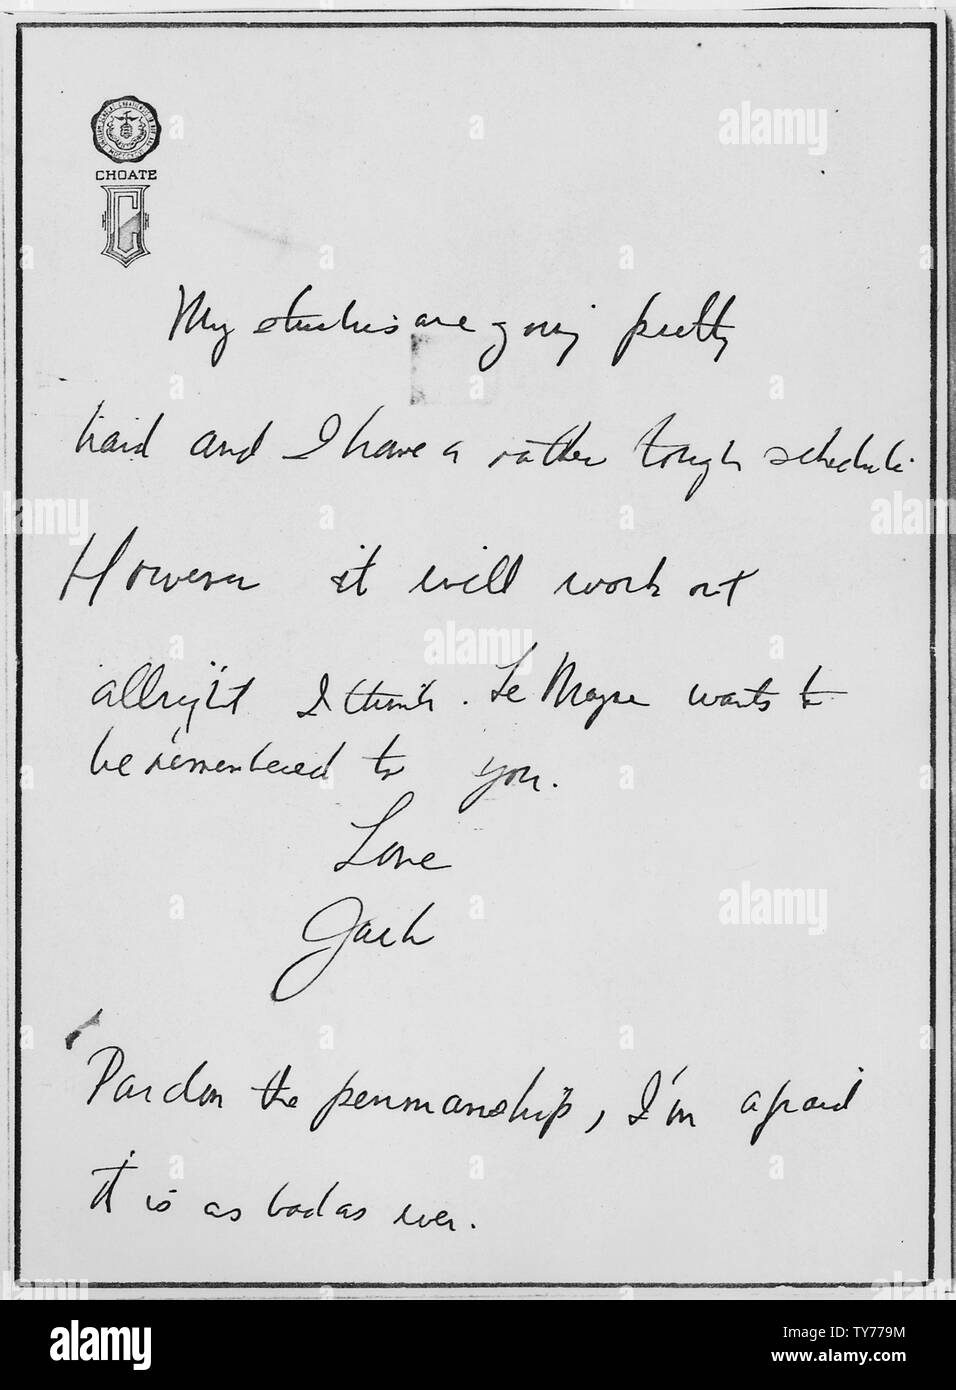 CHOATE
My studies are going pretty
hard and I have a rather tough schedule.
However it will work out
allright I think. Le Moyne wants to
be remembered to you.
Love
Jack
Pardon the penmanship, I'm afraid
it is as bad as ever.
alamy
Image ID: TY779M
www.alamy.com